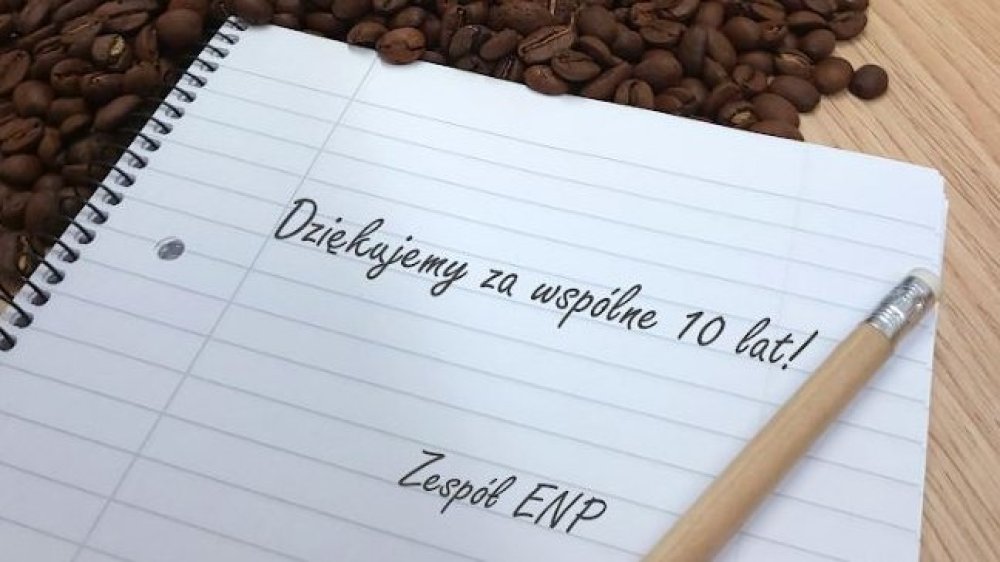 Dziękujemy za wspólne 10 lat!
Zespół ENP